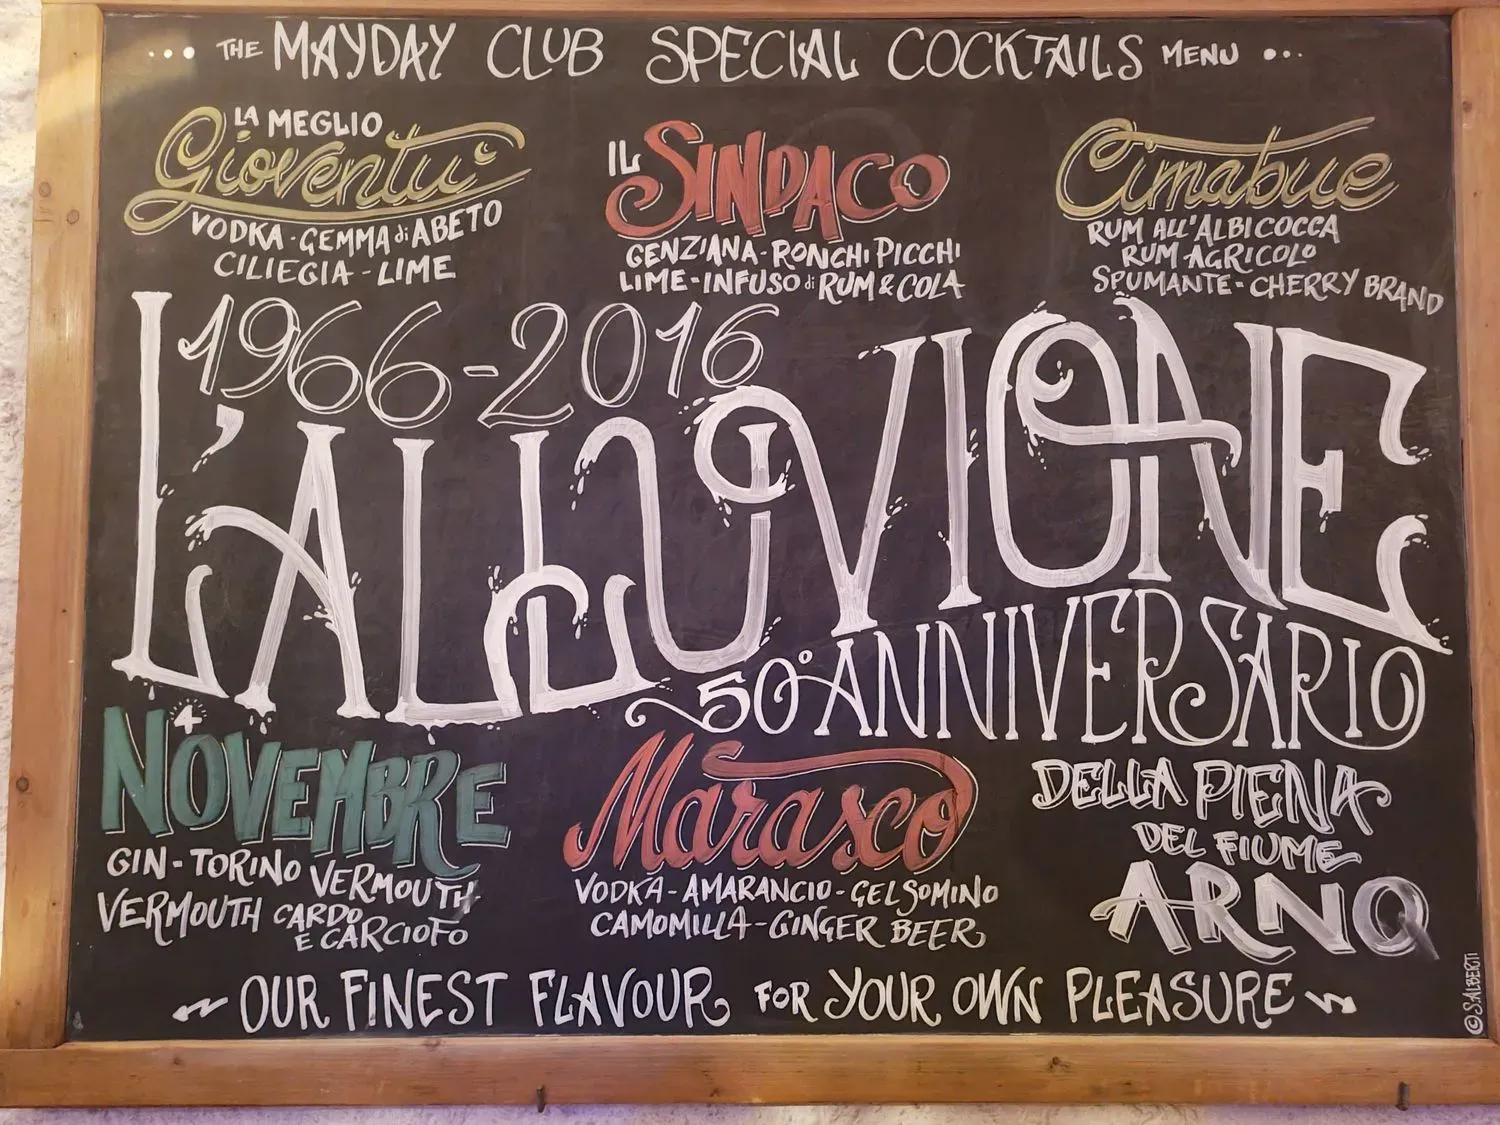 ... THE MAYDAY CLUB SPECIAL COCKTAILS MENU ...
LA MEGLIO
Gioventu'
VODKA - GEMMA di ABETO
CILIEGIA - LIME
IL SINDACO
GENZIANA - RONCHI PICCHI
LIME - INFUSO di RUM & COLA
Cimabue
RUM ALL'ALBICOCCA
RUM AGRICOLO
SPUMANTE - CHERRY BRAND
1966-2016
L'ALLUVIONE
50° ANNIVERSARIO
4
NOVEMBRE
GIN - TORINO VERMOUTH
VERMOUTH CARDO
E CARCIOFO
Marasco
VODKA - AMARANCIO - GELSOMINO
CAMOMILLA - GINGER BEER
DELLA PIENA
DEL FIUME
ARNO
OUR FINEST FLAVOUR FOR YOUR OWN PLEASURE
© S.ALBERTI